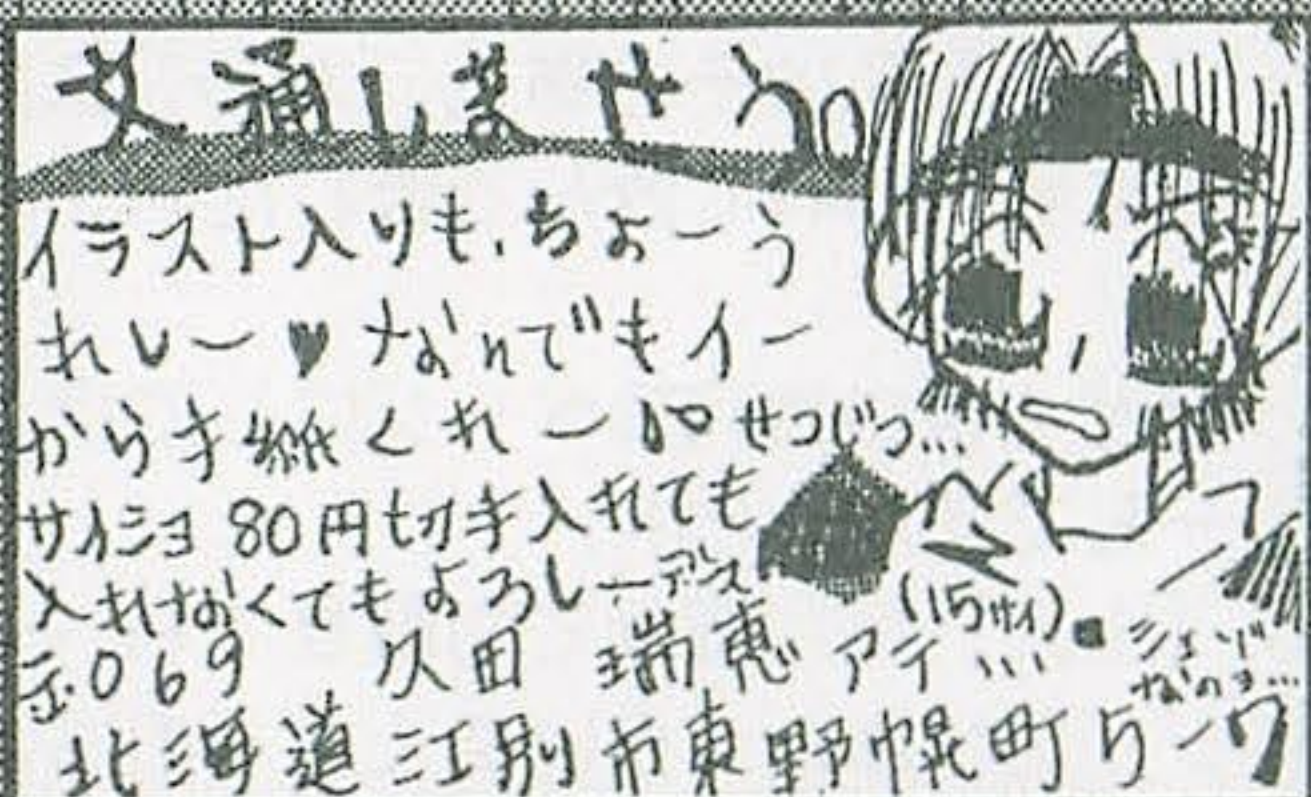 文通しませう。
イラスト入りも、ちょーう
れしー♥なんでもイー
から手紙くれー。せつじつ…
サイショ80円切手入れても
入れなくてもよろしーデス
〒069 久田 瑞恵アテ…(15サイ)
シェゾ
なのョ…
北海道江別市東野幌町5-7